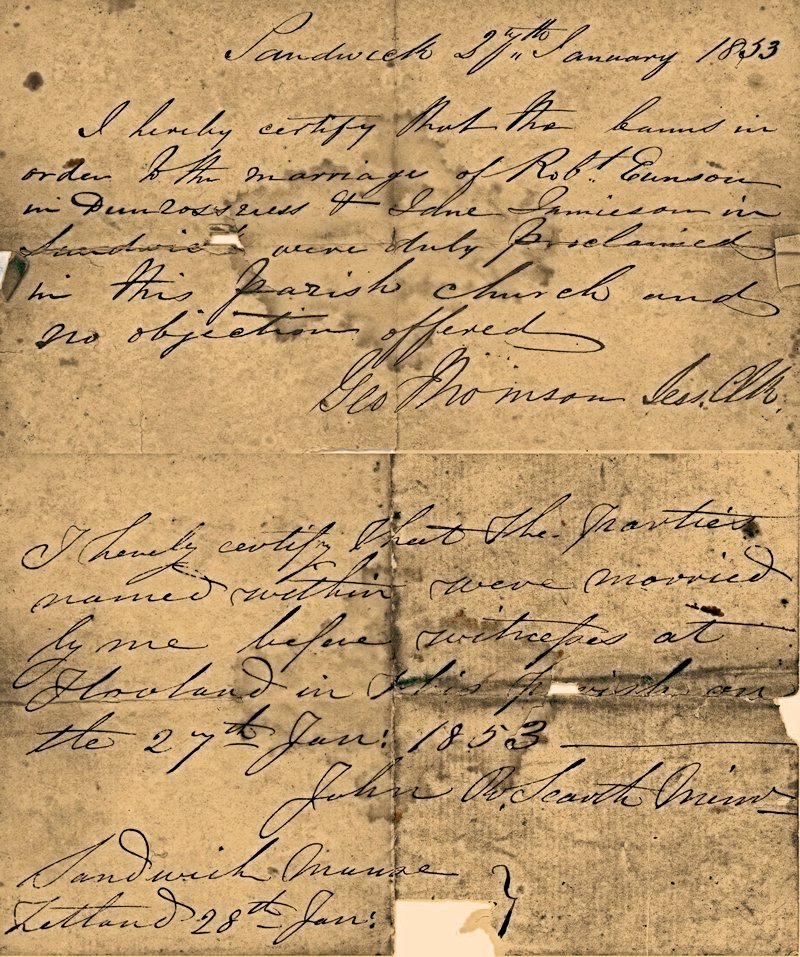 Sandwick 27th January 1853
I hereby certify that the banns in
order to the marriage of Robt. Eunson
in Dunrossness & Jane Jamieson in
Sandwick were duly proclaimed
in this parish church and
no objection offered
Geo Thomson Sess. Clk.
I hereby certify that the Parties
named within were married
by me before witnesses at
in this parish on
the 27th Jan: 1853
John R. Scarth Minr
Sandwick Manse
Zetland 28th Jan: